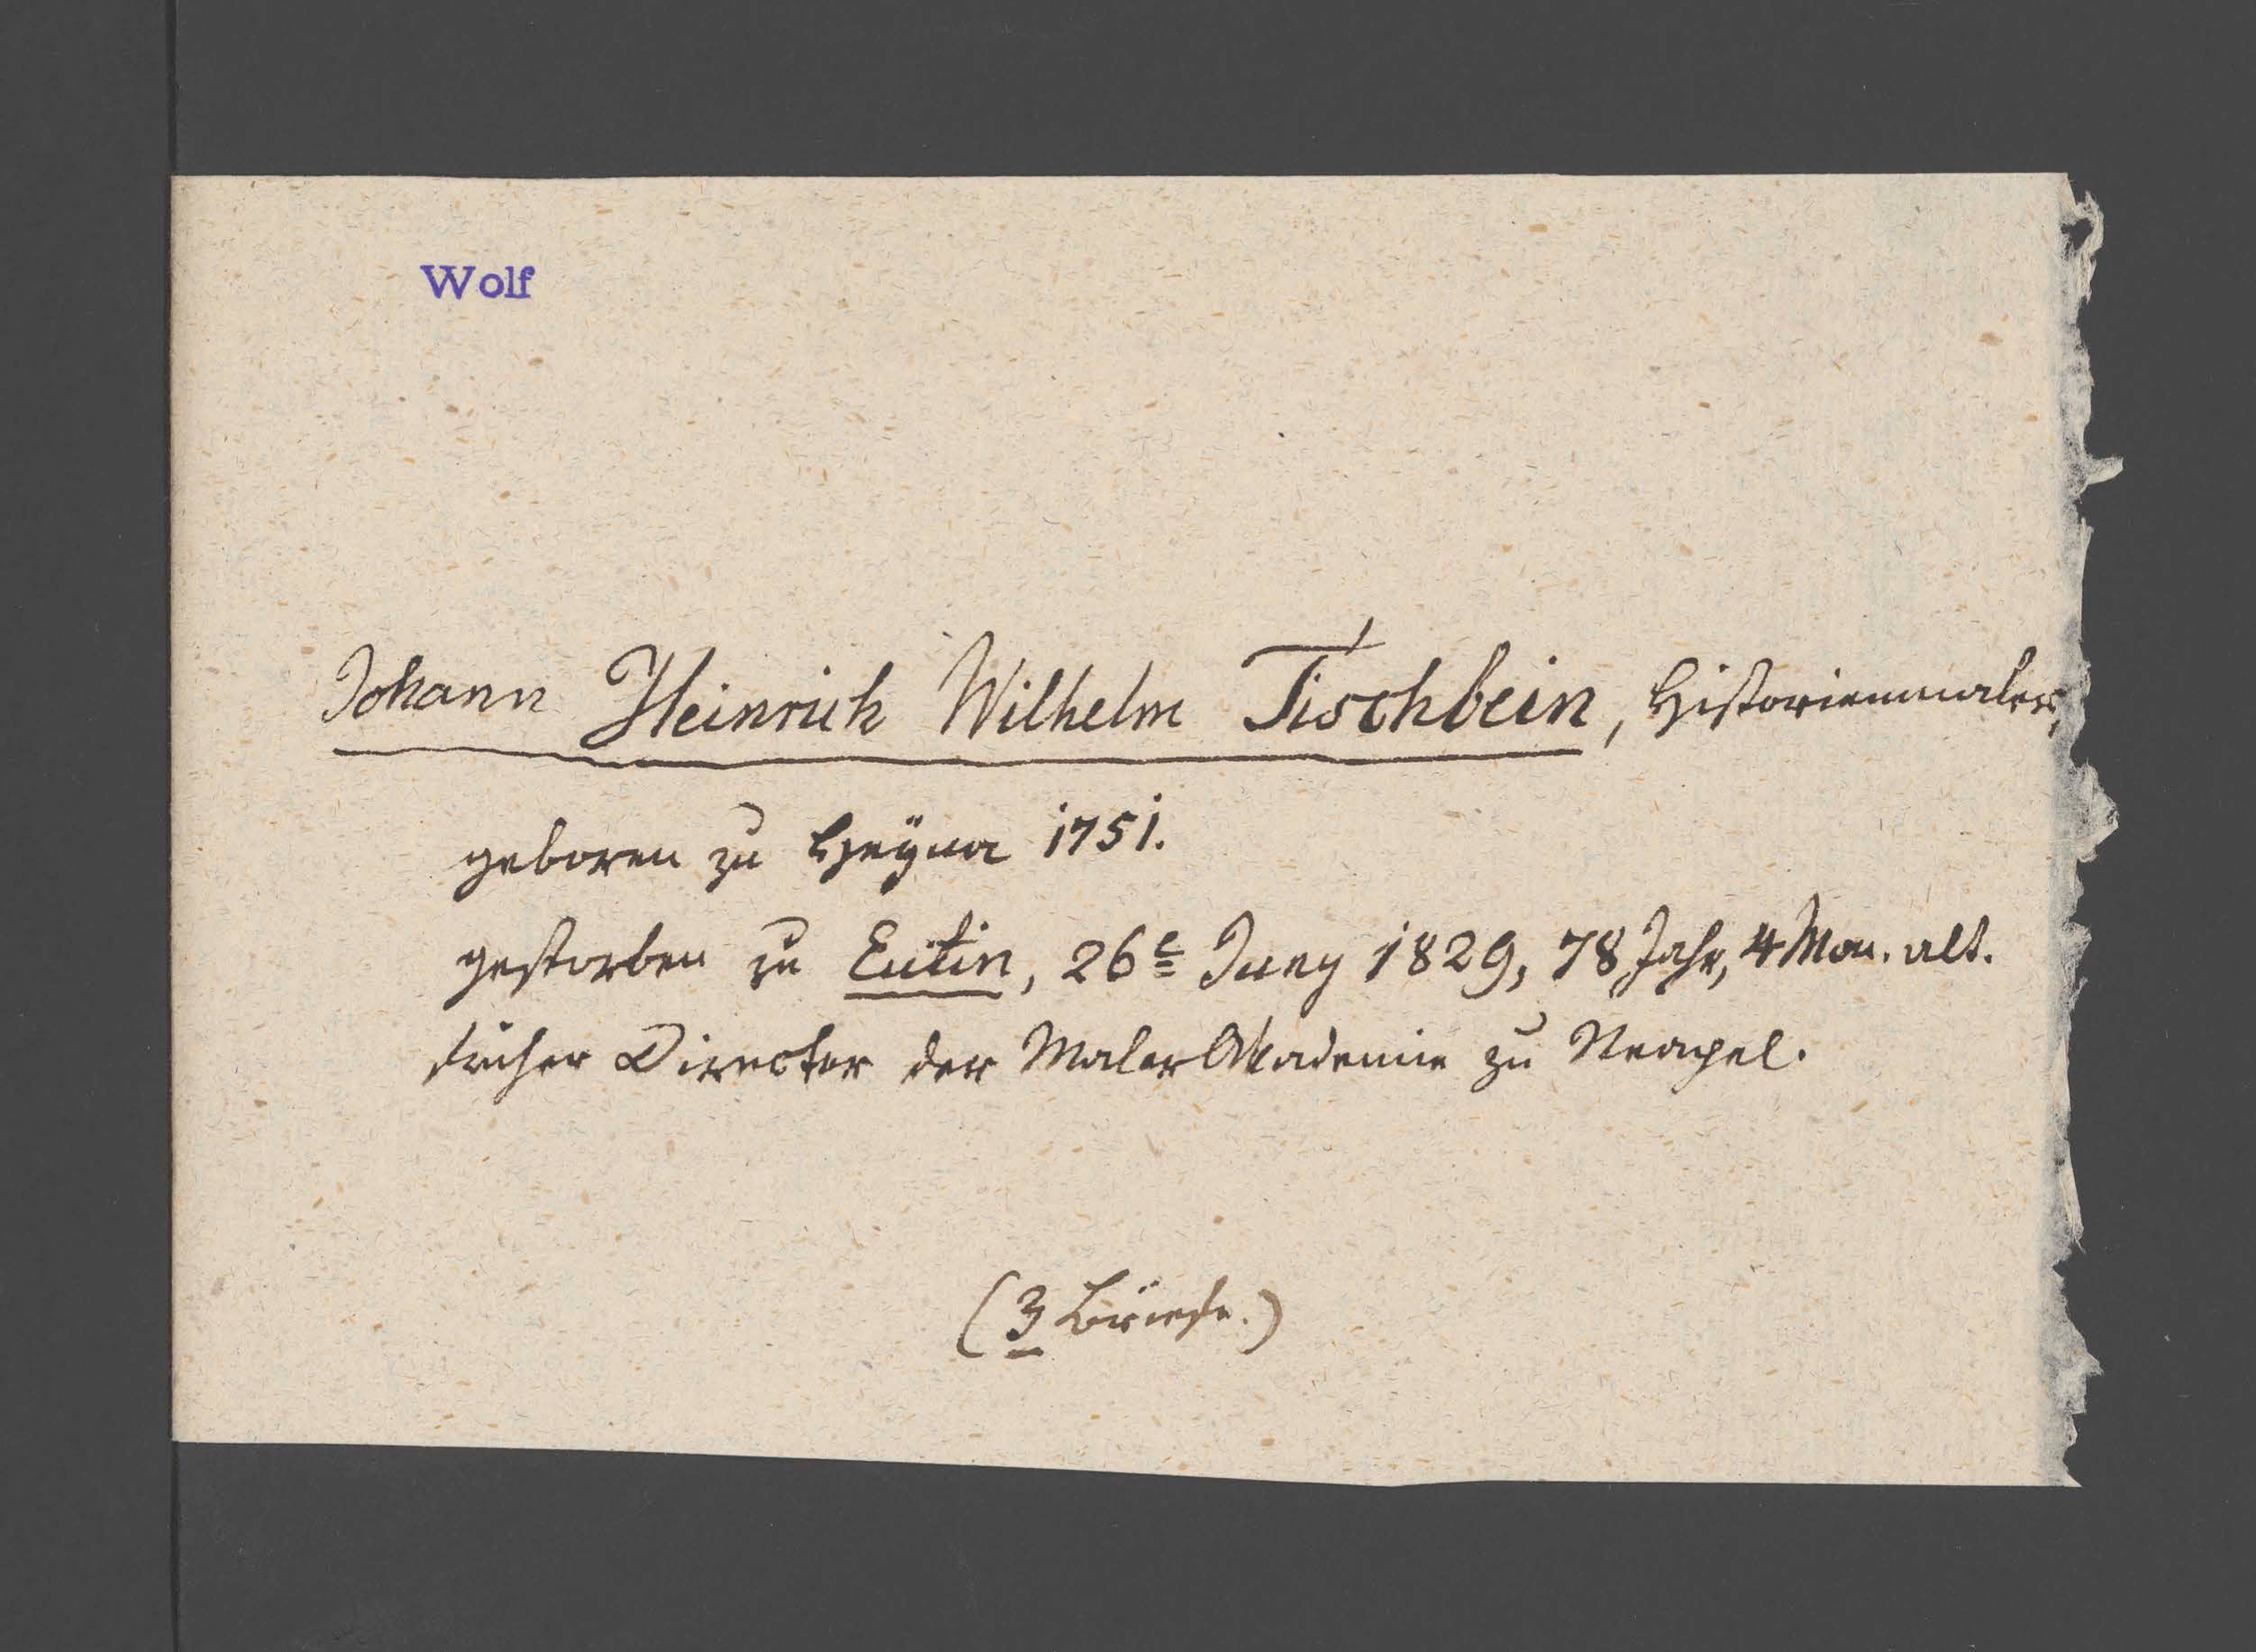 Wolf
Johann Heinrich Wilhelm Tischbein, Historienmaler,
geboren zu Heyna 1751.
gestorben zu Eutin, 26e Juny 1829, 78 Jahr, 4 Mon. alt.
früher Director der Maler Akademie zu Neapel.
(3 Briefe.)